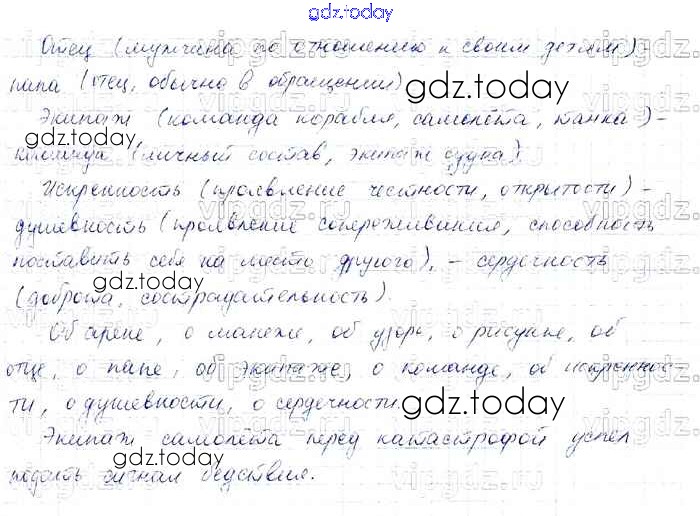 gdz.today
Отец (мужчина по отношению к своим детям) -
папа (отец, обычно в обращении)
gdz.today
Экипаж (команда корабля, самолёта, танка) -
команда (личный состав, экипаж судна).
Искренность (проявление честности, открытости) -
душевность (проявление сопереживания, способность
поставить себя на место другого), - сердечность
gdz.today
(доброта, сострадательность).
Об арене, о манеже, об узоре, о рисунке, об
отце, о папе, об экипаже, о команде, об искреннос-
ти, о душевности, о сердечности.
gdz.today
Экипаж самолёта перед катастрофой успел
gdz.today
подать сигнал бедствия.
gdz.today